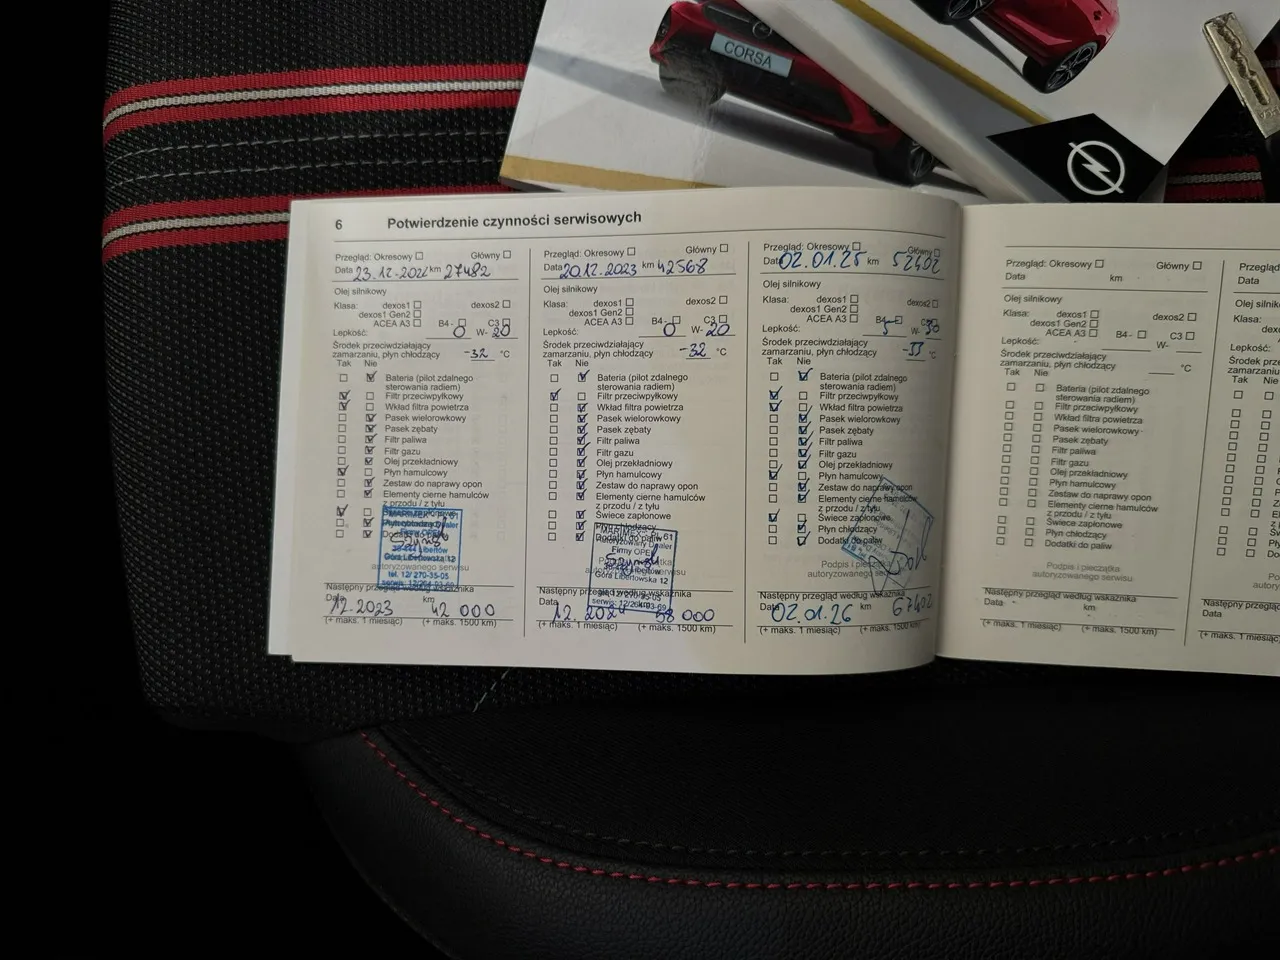 CORSA
6 Potwierdzenie czynności serwisowych
Przegląd: Okresowy Główny
Data 23.12.202 km 27482
Olej silnikowy
Klasa: dexos1 dexos2
dexos1 Gen2
ACEA A3 B4- C3
Lepkość: 0 W- 20
Środek przeciwdziałający
zamarzaniu, płyn chłodzący -32 °C
Tak Nie
Bateria (pilot zdalnego
sterowania radiem)
Filtr przeciwpyłkowy
Wkład filtra powietrza
Pasek wielorowkowy
Pasek zębaty
Filtr paliwa
Filtr gazu
Olej przekładniowy
Płyn hamulcowy
Zestaw do naprawy opon
Elementy cierne hamulców
z przodu / z tyłu
Libertów
Góra Libertowska 12
autoryzowanego serwisu
tel. 12/ 270-35-05
Następny przegląd według wskaźnika
Data 12.2023 km 42 000
(+ maks. 1 miesiąc) (+ maks. 1500 km)
Przegląd: Okresowy Główny
Data 20.12.2023 km 42568
Olej silnikowy
Klasa: dexos1 dexos2
dexos1 Gen2
ACEA A3 B4- C3
Lepkość: 0 W- 20
Środek przeciwdziałający
zamarzaniu, płyn chłodzący -32 °C
Tak Nie
Bateria (pilot zdalnego
sterowania radiem)
Filtr przeciwpyłkowy
Wkład filtra powietrza
Pasek wielorowkowy
Pasek zębaty
Filtr paliwa
Filtr gazu
Olej przekładniowy
Płyn hamulcowy
Zestaw do naprawy opon
Elementy cierne hamulców
z przodu / z tyłu
Świece zapłonowe
Płyn chłodzący
Dodatki do paliw
Firmy OPEL
Libertów
Góra Libertowska 12
Następny przegląd według wskaźnika
Data 12. 202 km 58 000
(+ maks. 1 miesiąc) (+ maks. 1500 km)
Przegląd: Okresowy Główny
Data 02.01.25 km 52402
Olej silnikowy
Klasa: dexos1 dexos2
dexos1 Gen2
ACEA A3 B4- C3
Lepkość: 5 W- 30
Środek przeciwdziałający
zamarzaniu, płyn chłodzący °C
Tak Nie
Bateria (pilot zdalnego
sterowania radiem)
Filtr przeciwpyłkowy
Wkład filtra powietrza
Pasek wielorowkowy
Pasek zębaty
Filtr paliwa
Filtr gazu
Olej przekładniowy
Płyn hamulcowy
Zestaw do naprawy opon
Elementy cierne hamulców
z przodu / z tyłu
Świece zapłonowe
Płyn chłodzący
Dodatki do paliw
Podpis i pieczątka
autoryzowanego serwisu
Następny przegląd według wskaźnika
Data 02.01.26 km 67402
(+ maks. 1 miesiąc) (+ maks. 1500 km)
Przegląd: Okresowy Główny
Data km
Olej silnikowy
Klasa: dexos1 dexos2
dexos1 Gen2
ACEA A3 B4- C3
Lepkość: W-
Środek przeciwdziałający
zamarzaniu, płyn chłodzący °C
Tak Nie
Bateria (pilot zdalnego
sterowania radiem)
Filtr przeciwpyłkowy
Wkład filtra powietrza
Pasek wielorowkowy
Pasek zębaty
Filtr paliwa
Filtr gazu
Olej przekładniowy
Płyn hamulcowy
Zestaw do naprawy opon
Elementy cierne hamulców
z przodu / z tyłu
Świece zapłonowe
Płyn chłodzący
Dodatki do paliw
Podpis i pieczątka
autoryzowanego serwisu
Następny przegląd według wskaźnika
Data km
(+ maks. 1 miesiąc) (+ maks. 1500 km)
Przegląd:
Data
Klasa:
Lepkość:
Tak Nie
Data
(+ maks. 1